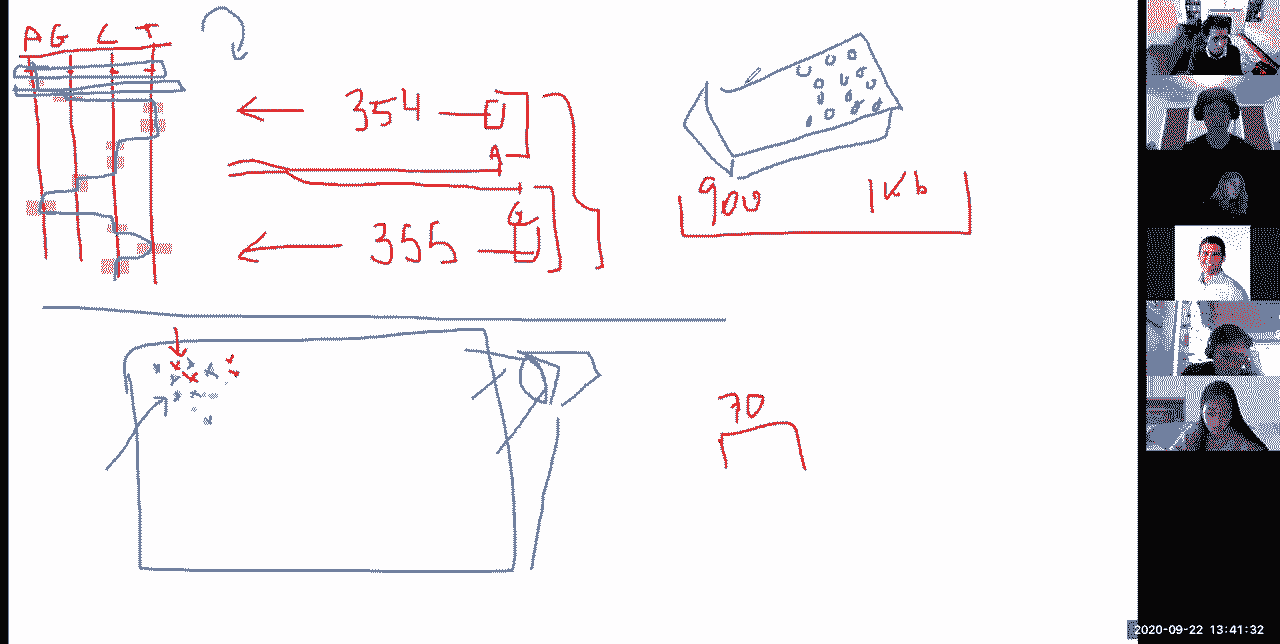 A G C T
354
A
G
355
900 1Kb
70
2020-09-22 13:41:32